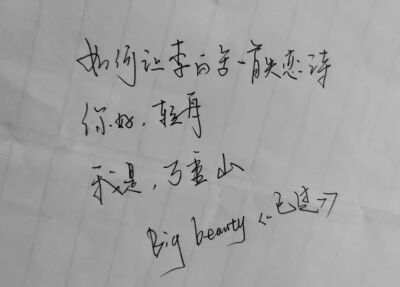 如何让李白写一首失恋诗
你好，轻舟
我是，万重山
Big beauty《已过》